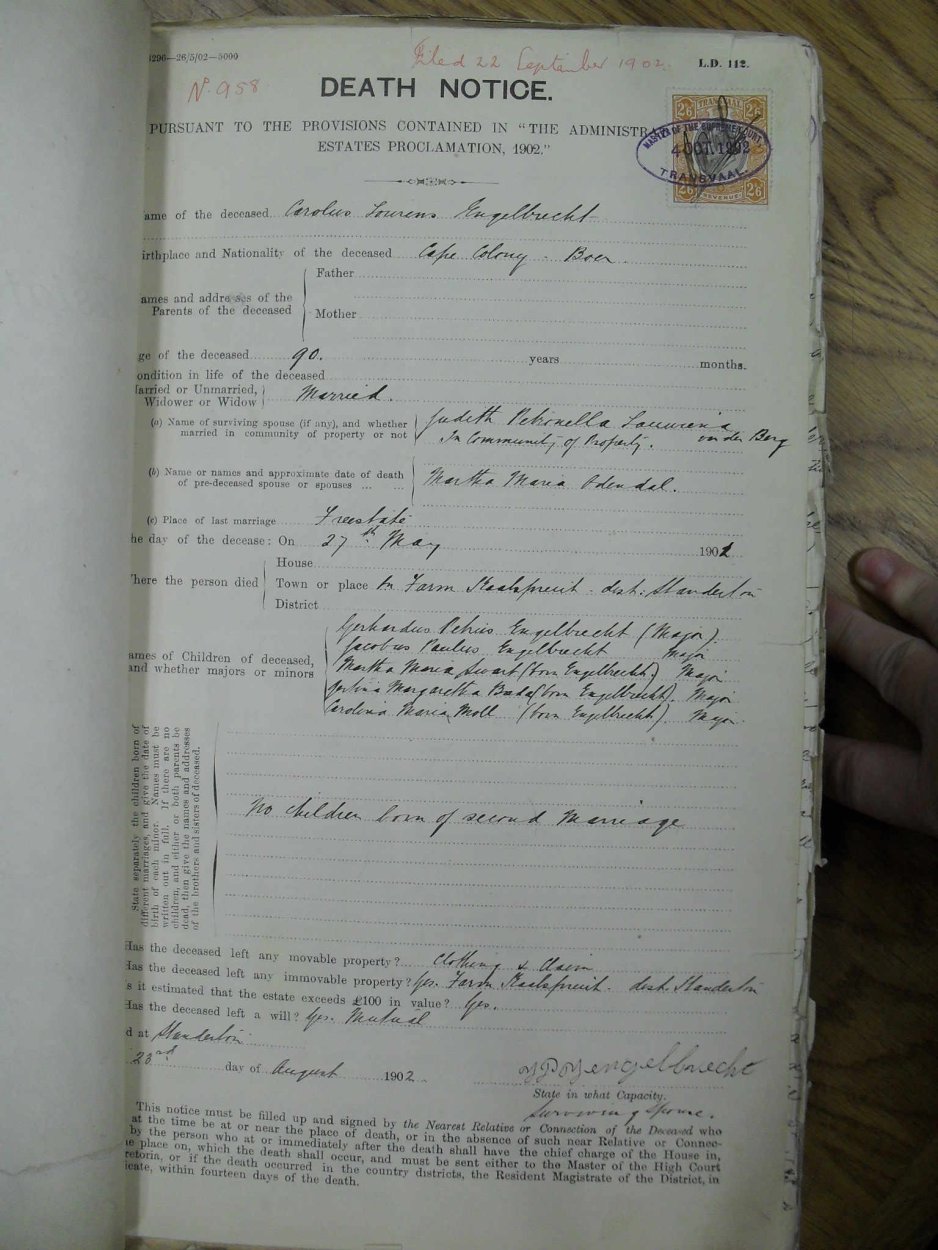 1296—26/5/02—5000
Filed 22 September 1902.
L.D. 112.
No 958
DEATH NOTICE.
PURSUANT TO THE PROVISIONS CONTAINED IN "THE ADMINISTRA
ESTATES PROCLAMATION, 1902."
2/6 TRANSVAAL 2/6
MASTER OF THE SUPREME COURT
4 OCT. 1902
TRANSVAAL.
2/6 REVENUE 2/6
ame of the deceased Carolus Lourens Engelbrecht
irthplace and Nationality of the deceased Cape Colony - Boer.
Father
ames and addresses of the
Parents of the deceased
Mother
ge of the deceased 90. years months.
ondition in life of the deceased
arried or Unmarried,
Widower or Widow Married.
(a) Name of surviving spouse (if any), and whether
married in community of property or not
Judith Petronella Louwiena van der Berg
In Community of Property.
(b) Name or names and approximate date of death
of pre-deceased spouse or spouses ... ...
Martha Maria Odendal.
(c) Place of last marriage Freestate
he day of the decease: On 27th May 1902
House
here the person died Town or place On Farm dist: Standerton
District
ames of Children of deceased,
and whether majors or minors
Gerhardus Petrus Engelbrecht (Major).
Jacobus Paulus Engelbrecht Major
Martha Maria Swart (born Engelbrecht) Major
Margaretha (born Engelbrecht). Major
Carolina Maria Moll (born Engelbrecht). Major.
State separately the children born of
different marriages, and give the date of
birth of each minor. Names must be
written out in full. If there are no
children, and either or both parents be
dead, then give the names and addresses
of the brothers and sisters of deceased.
No children born of second Marriage
Has the deceased left any movable property? Clothing & Claim
Has the deceased left any immovable property? Yes. Farm dist. Standerton
s it estimated that the estate exceeds £100 in value? Yes.
Has the deceased left a will? Yes. Mutual
d at Standerton
23rd day of August 1902.
Engelbrecht
State in what Capacity.
Surviving Spouse.
This notice must be filled up and signed by the Nearest Relative or Connection of the Deceased who
at the time be at or near the place of death, or in the absence of such near Relative or Connec-
by the person who at or immediately after the death shall have the chief charge of the House in,
e place on, which the death shall occur, and must be sent either to the Master of the High Court
retoria, or if the death occurred in the country districts, the Resident Magistrate of the District, in
icate, within fourteen days of the death.